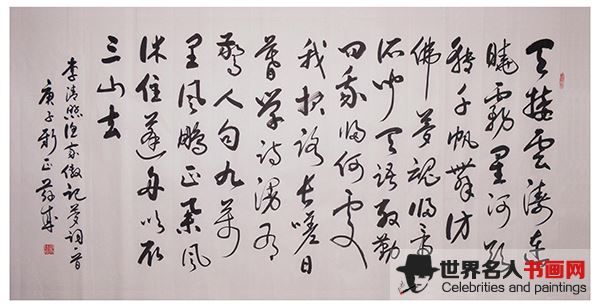 天接雲濤連
曉霧星河欲
轉千帆舞仿
佛夢魂歸帝
所聞天語殷勤
問我歸何處
我報路長嗟日
暮學詩謾有
驚人句九萬
里風鵬正舉風
休住蓬舟吹取
三山去
李清照漁家傲記夢詞一首
庚子新正
世界名人书画网
Celebrities and paintings